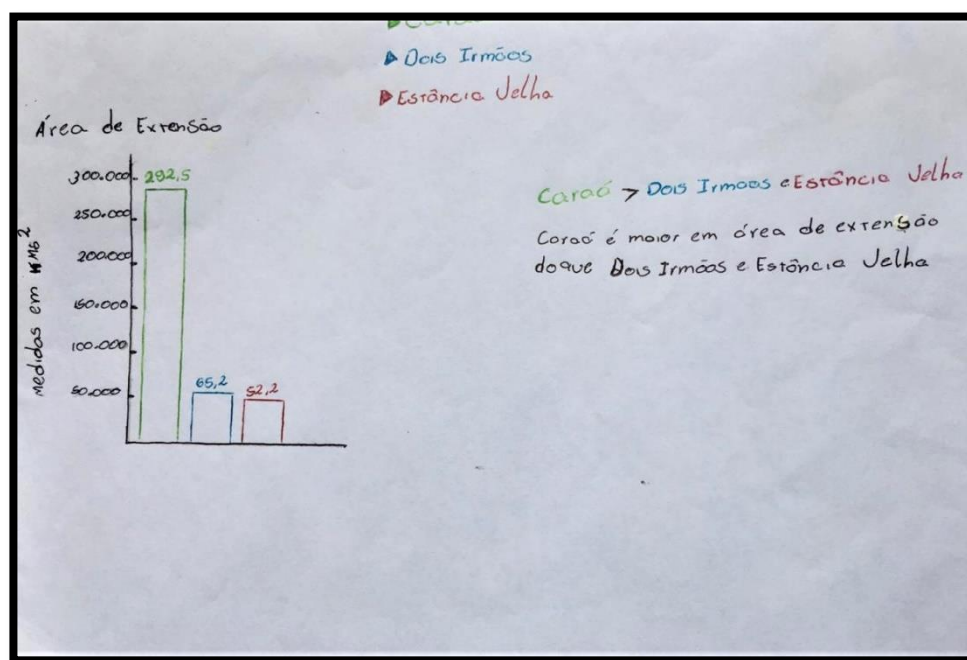 ▶ Dois Irmãos
▶ Estância Velha
Área de Extensão
medidas em KM²
300.000
292,5
250.000
200.000
150.000
100.000
50.000
65,2
52,2
Caraá > Dois Irmãos e Estância Velha
Caraá é maior em área de extensão
do que Dois Irmãos e Estância Velha